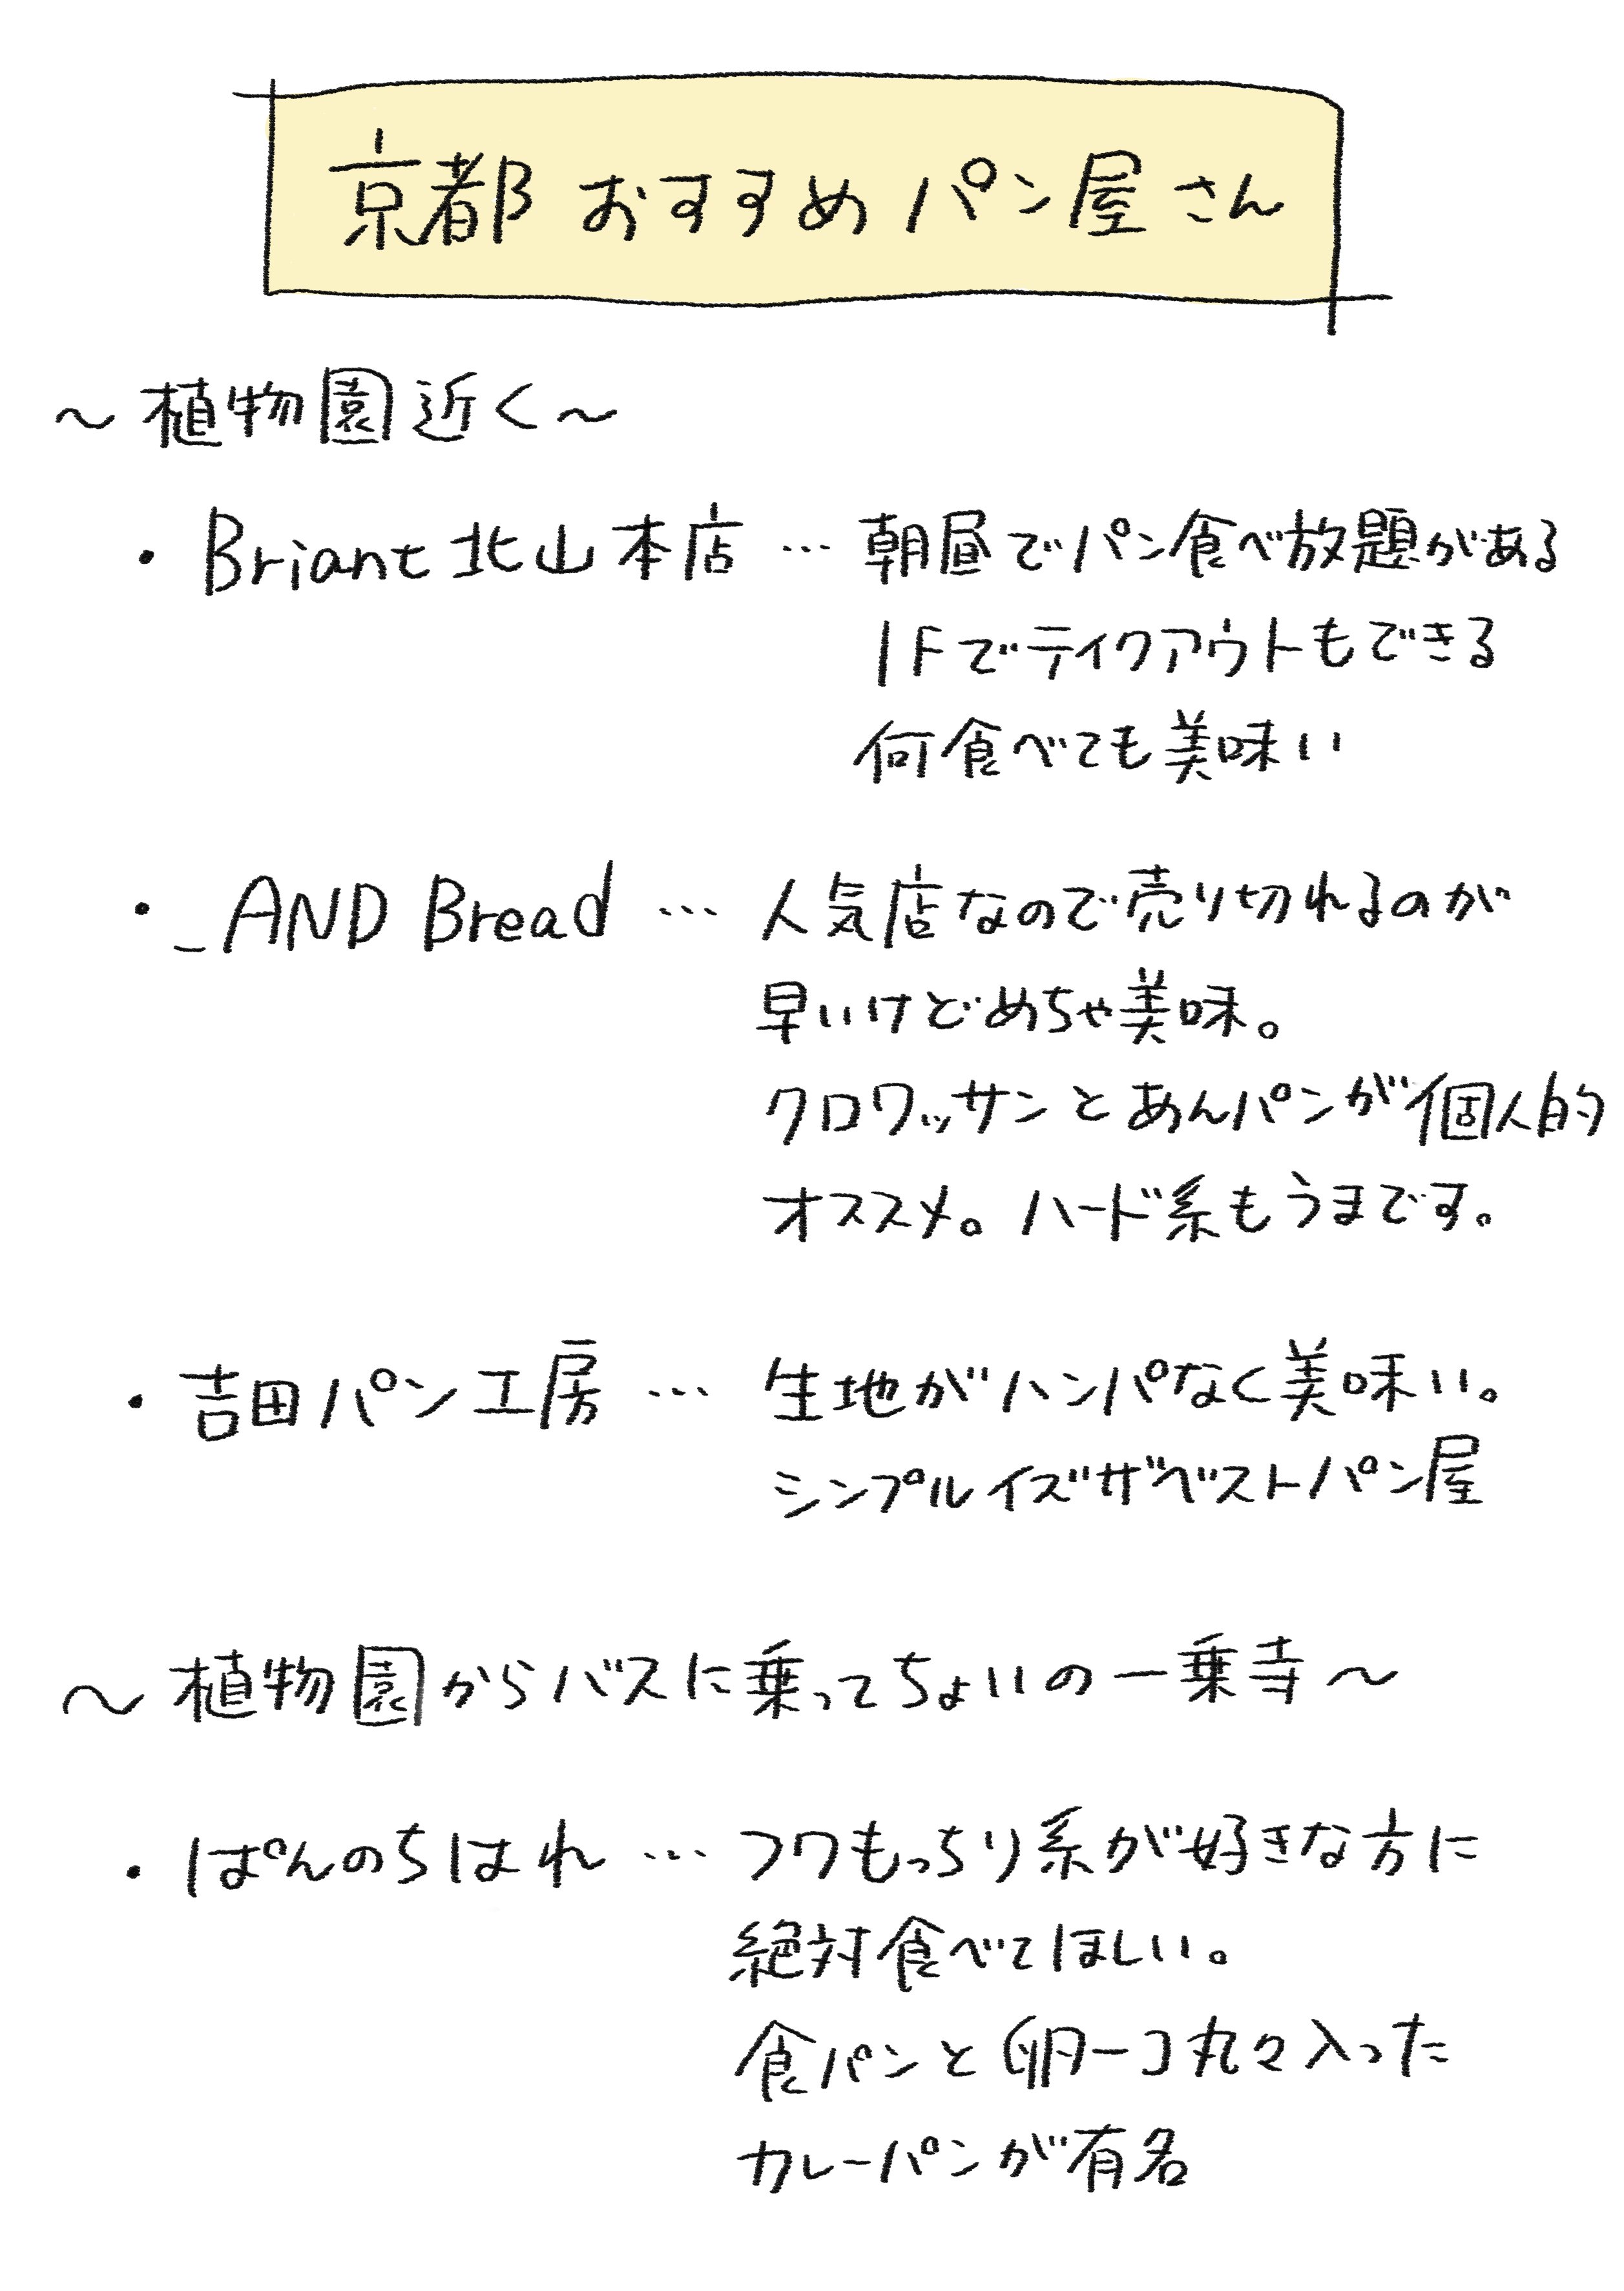 京都 おすすめパン屋さん
〜植物園近く〜
・Briant北山本店 … 朝昼でパン食べ放題がある
1Fでテイクアウトもできる
何食べても美味い
・_AND Bread … 人気店なので売り切れるのが
早いけどめちゃ美味。
クロワッサンとあんパンが個人的
オススメ。ハード系もうまです。
・吉田パン工房 … 生地がハンパなく美味い。
シンプルイズザベストパン屋
〜植物園からバスに乗ってちょいの一乗寺〜
・ぱんのちはれ … フワもっちり系が好きな方に
絶対食べてほしい。
食パンと卵一コ丸々入った
カレーパンが有名